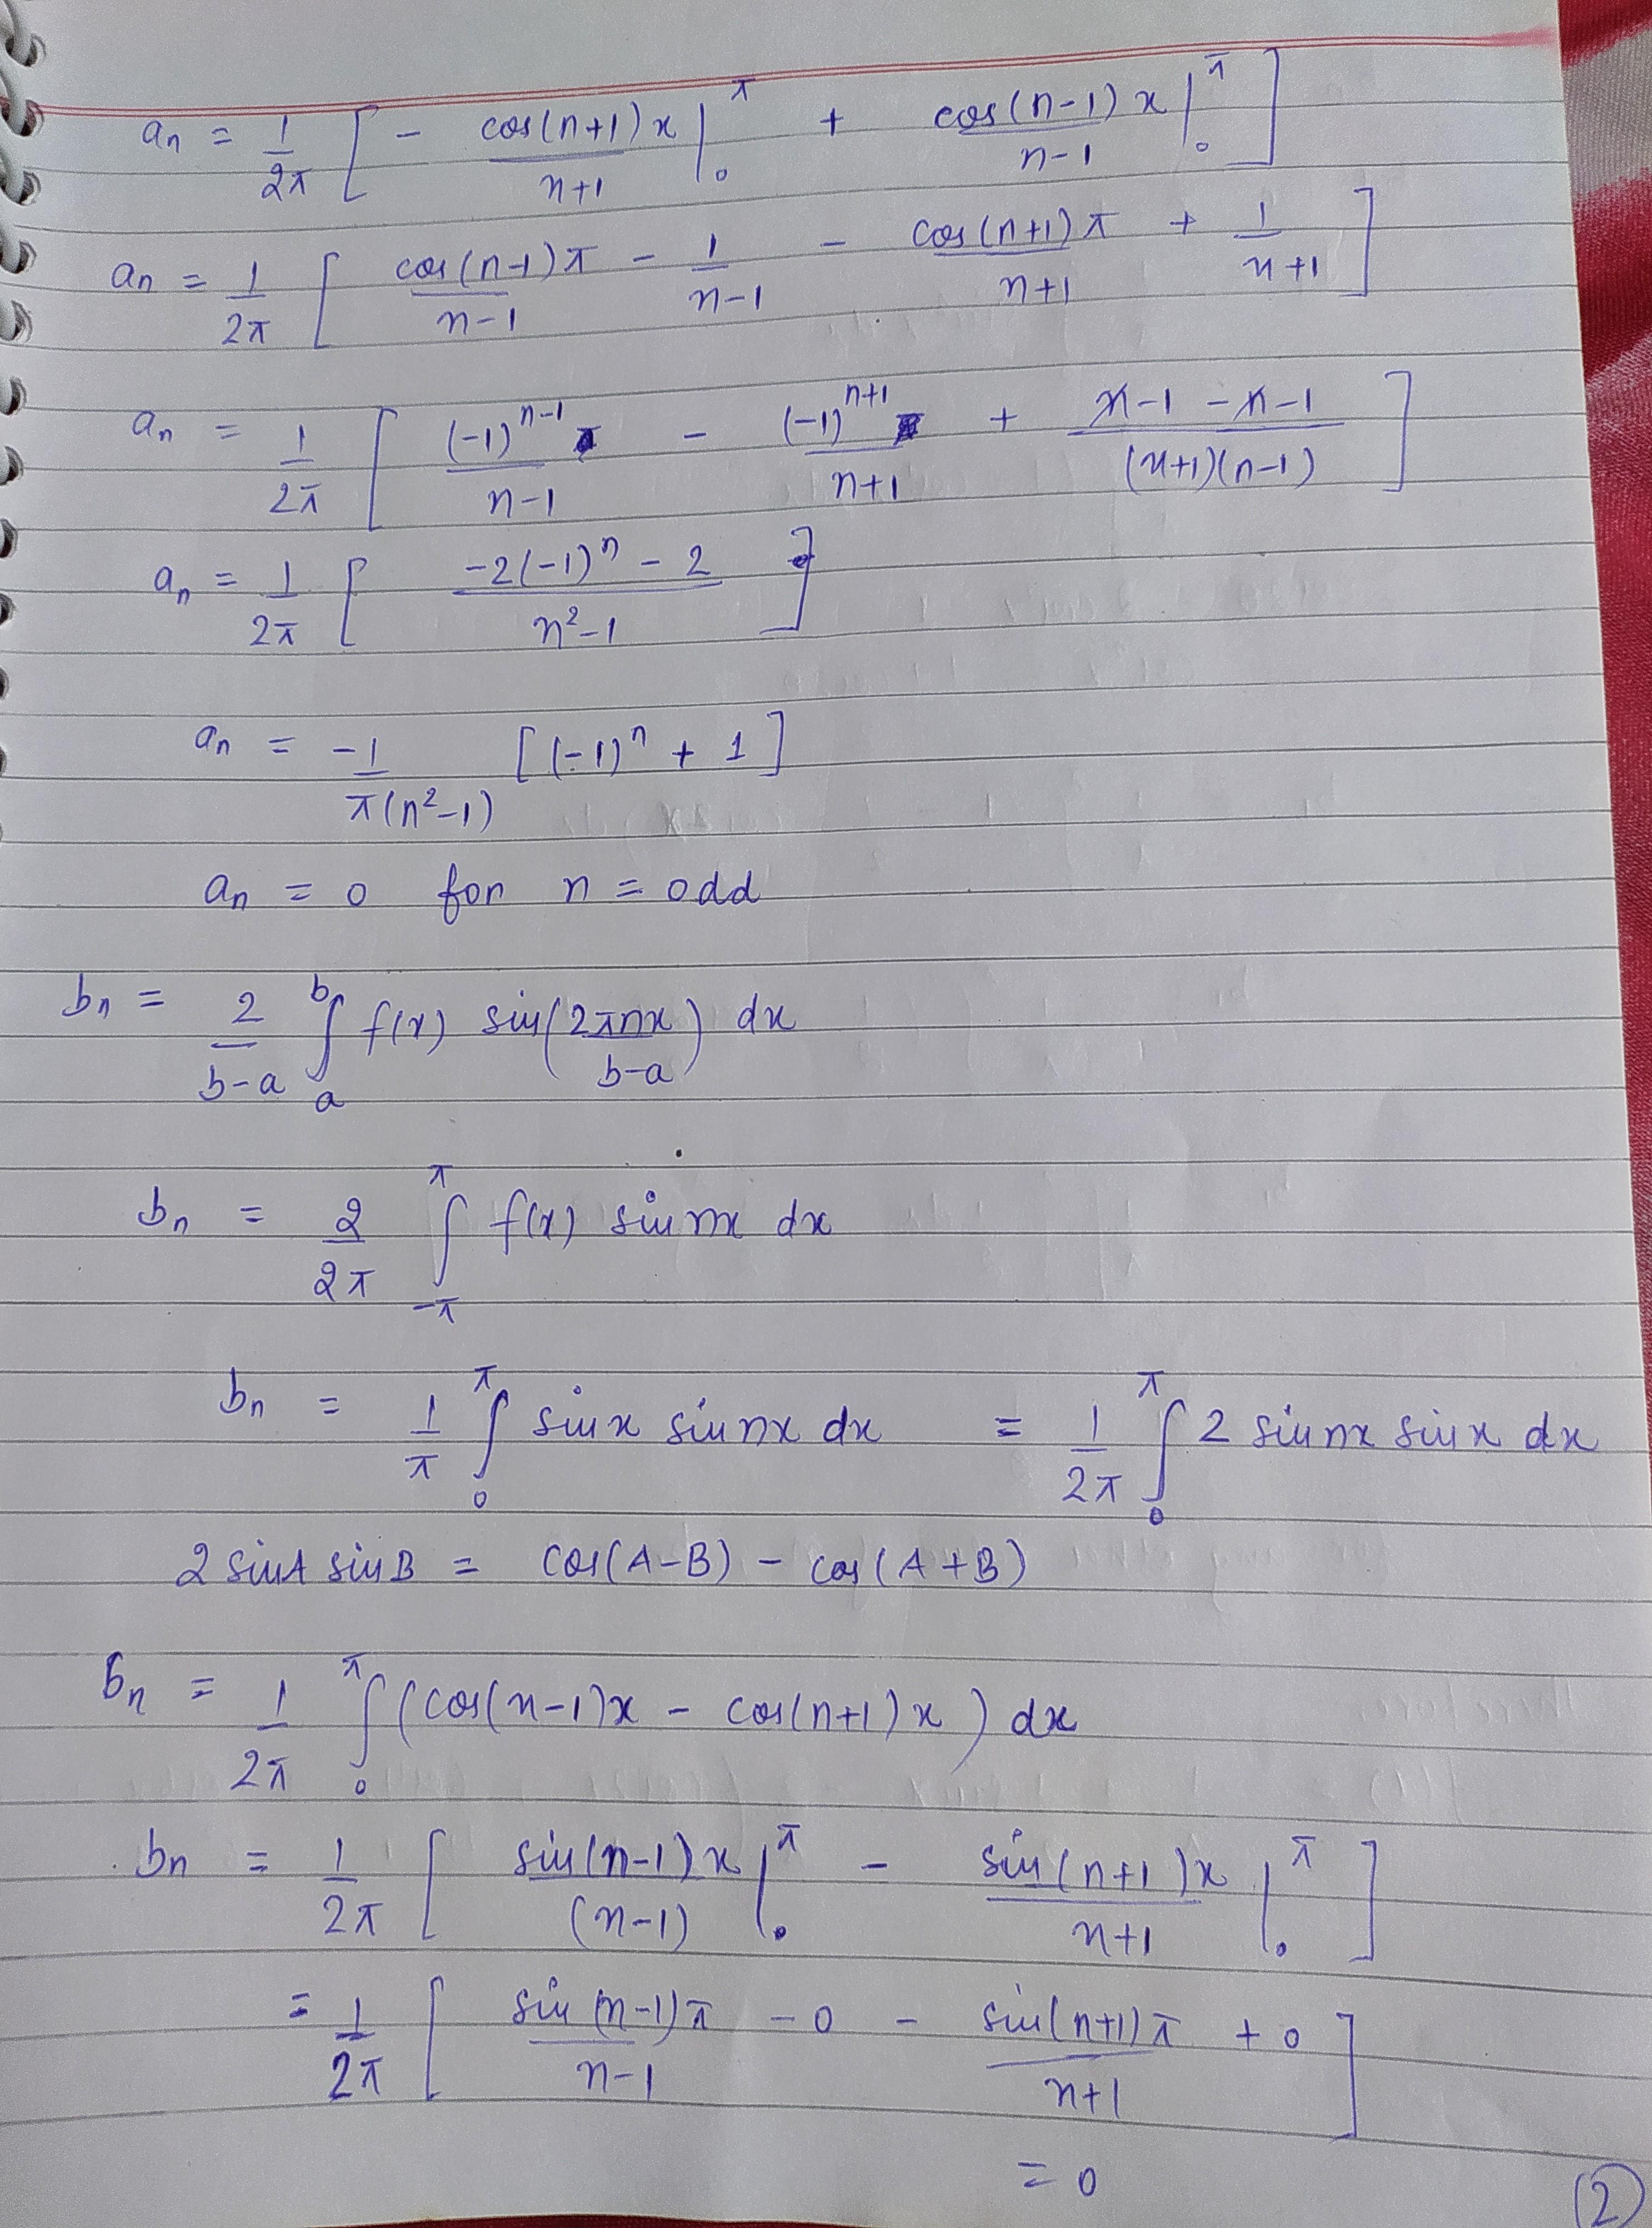 aₙ = 1/2π [ - cos(n+1)x/n+1 |₀^π + cos(n-1)x/n-1 |₀^π ]
aₙ = 1/2π [ cos(n-1)π/n-1 - 1/n-1 - cos(n+1)π/n+1 + 1/n+1 ]
aₙ = 1/2π [ (-1)^(n-1)/n-1 - (-1)^(n+1)/n+1 + n-1-n-1/(n+1)(n-1) ]
aₙ = 1/2π [ -2(-1)ⁿ - 2/n²-1 ]
aₙ = -1/π(n²-1) [(-1)ⁿ + 1]
aₙ = 0 for n = odd
bₙ = 2/b-a ∫ₐᵇ f(x) sin(2πnx/b-a) dx
bₙ = 2/2π ∫_-π^π f(x) sin nx dx
bₙ = 1/π ∫₀^π sinx sin nx dx = 1/2π ∫₀^π 2 sin nx sin x dx
2 sinA sinB = cos(A-B) - cos(A+B)
bₙ = 1/2π ∫₀^π (cos(n-1)x - cos(n+1)x) dx
bₙ = 1/2π [ sin(n-1)x/(n-1) |₀^π - sin(n+1)x/n+1 |₀^π ]
= 1/2π [ sin(n-1)π/n-1 - 0 - sin(n+1)π/n+1 + 0 ]
= 0
2